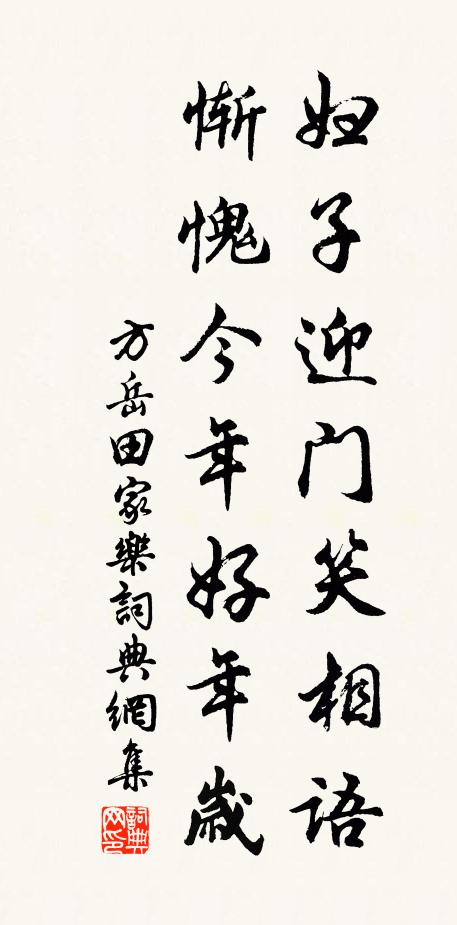 妇子迎门笑相语
惭愧今年好年岁
方岳田家樂詞典網集
詞典网印